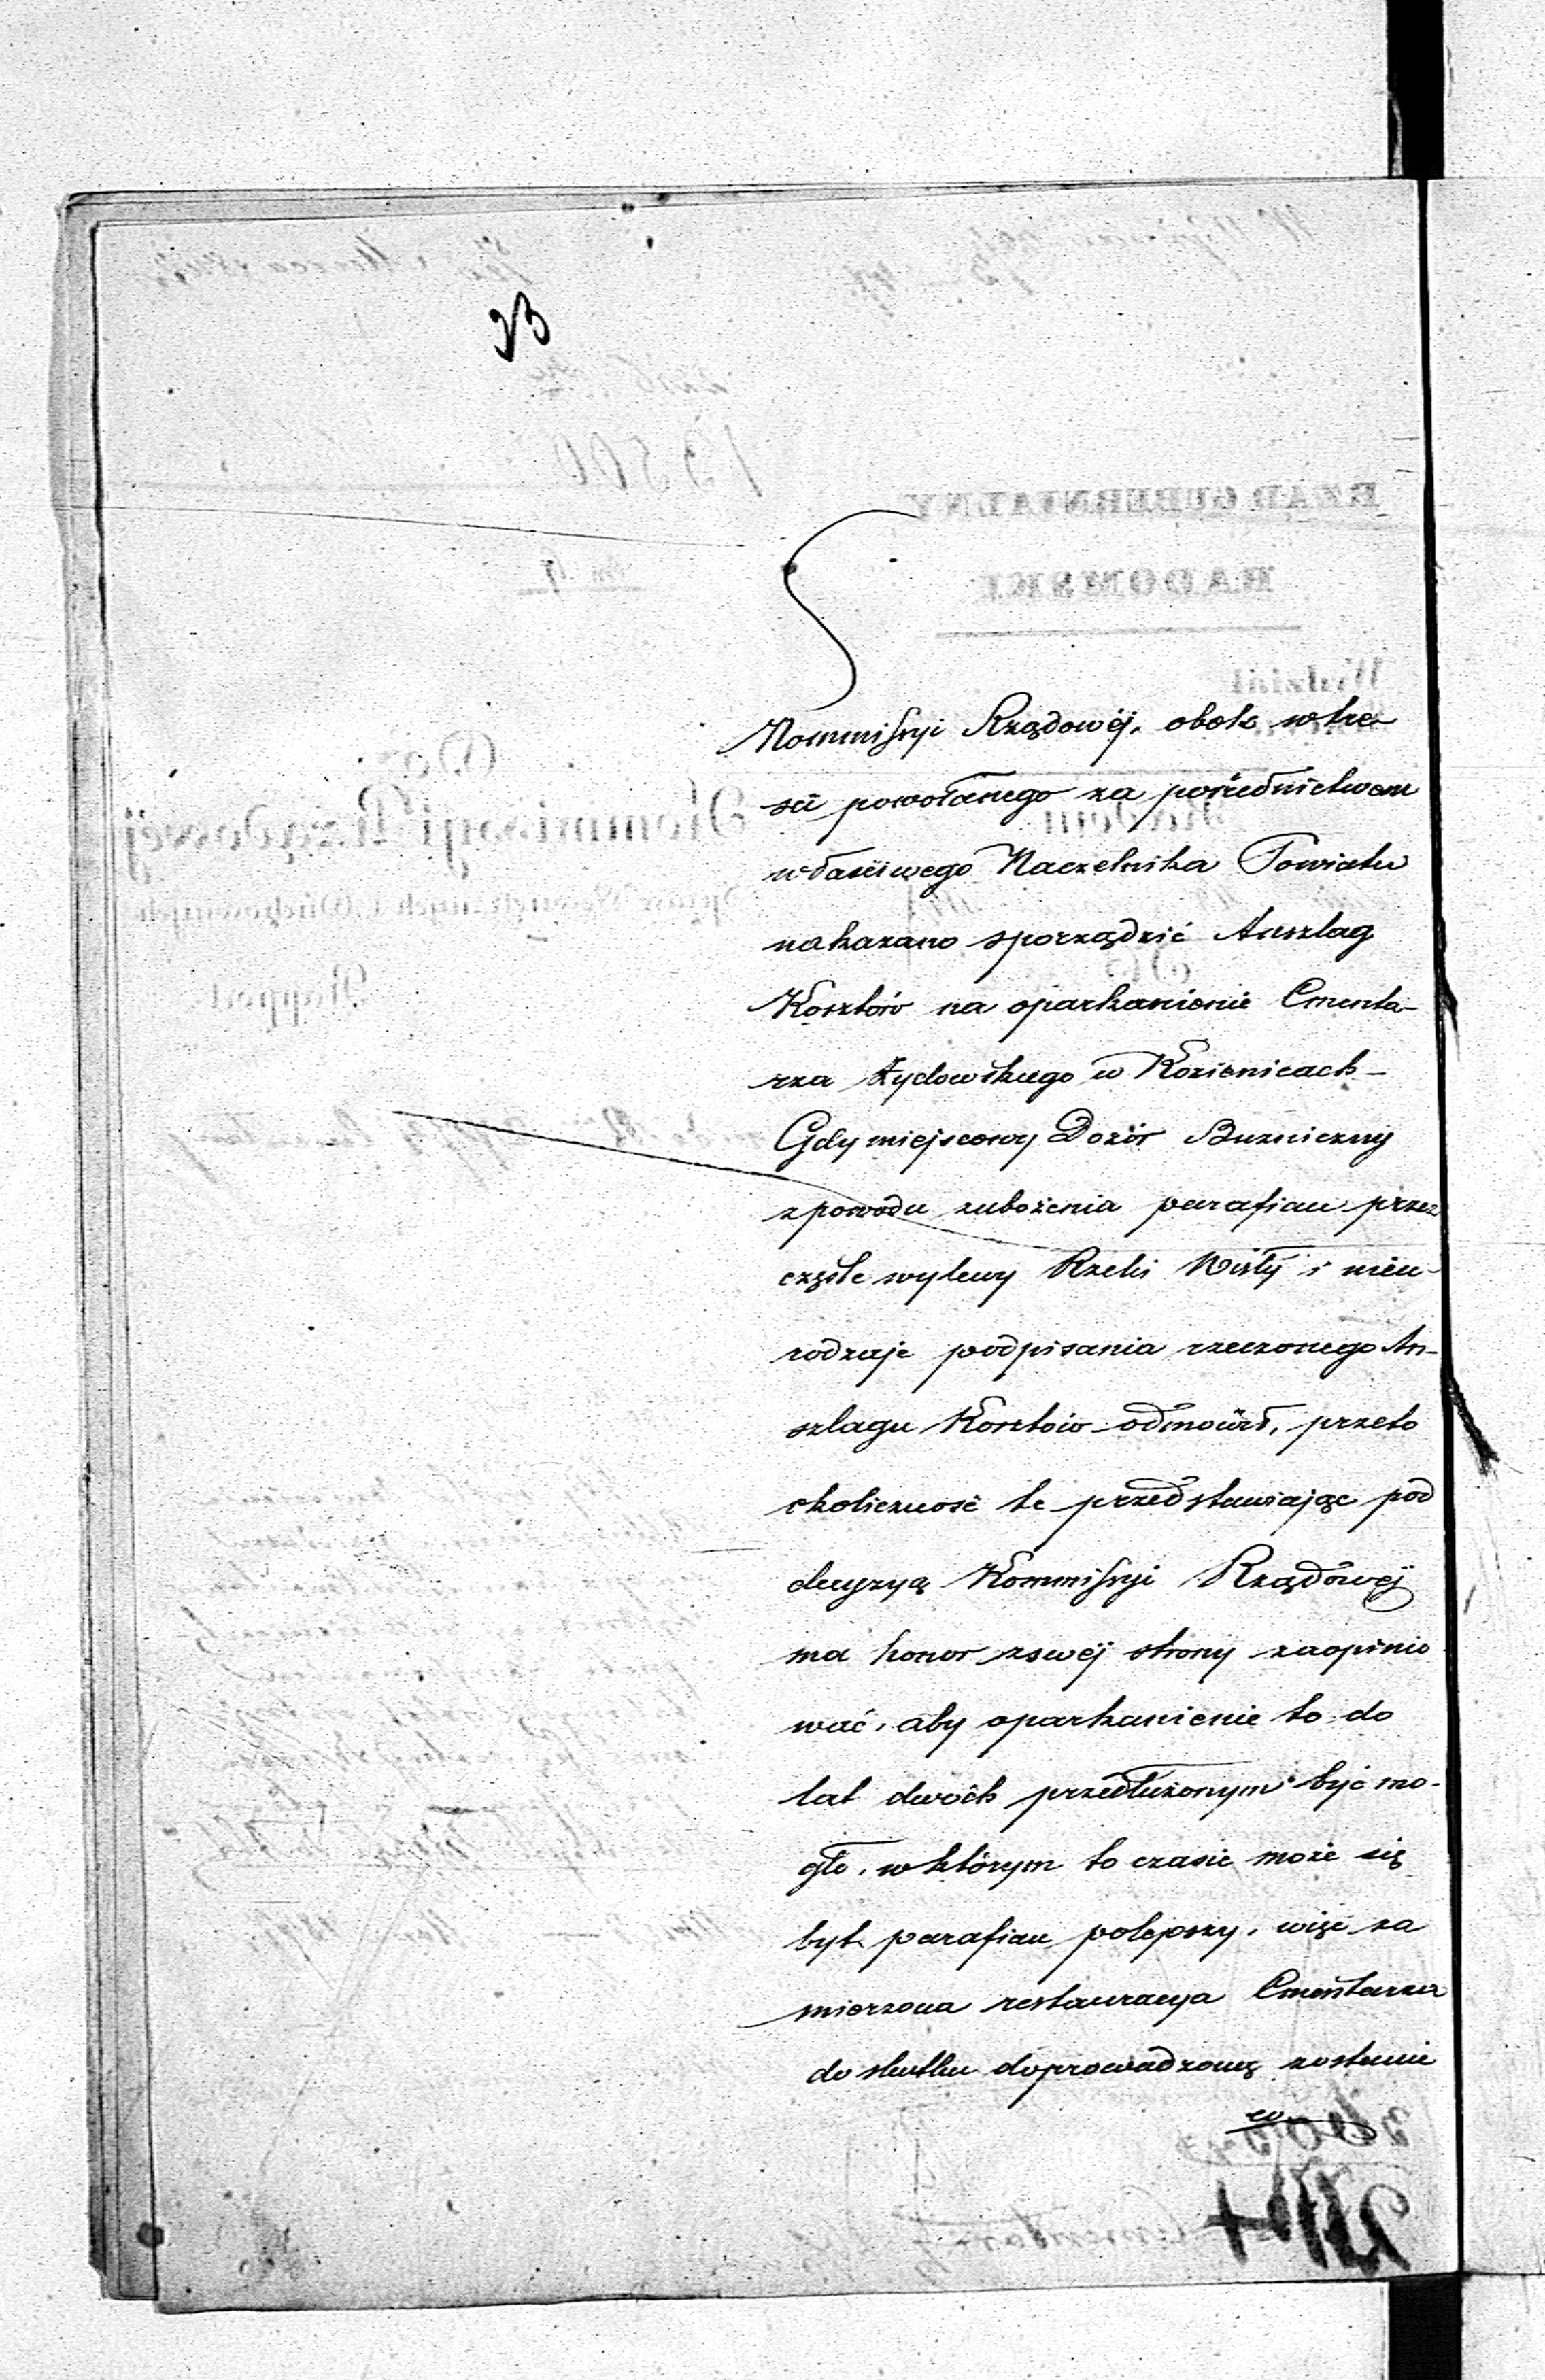 23
Kommissyi Rządowéj, obok wtre-
ści powołanego za pośrednictwem
właściwego Naczelnika Powiatu
nakazano sporządzić Anszlag
Kosztów na oparkanienie Cmenta-
rza Żydowskiego w Kozienicach –
Gdy miejscowy Dozór Bużniczny
z powodu zubożenia parafian przez
częste wylewy Rzeki Wisły i nieu-
rodzaje podpisania rzeczonego An-
szlagu Kosztów odmówił, przeto
okoliczność te przedstawiając pod
decyzyą Kommissyi Rządowéj
ma honor zswéj strony zaopinio
wać, aby oparkanienie to do
lat dwóch przedłużonym być mo-
gło, w którym to czasie może się
byt parafian polepszy, więc za
mierzona restauracya Cmentarza
do skutku doprowadzoną zostanie